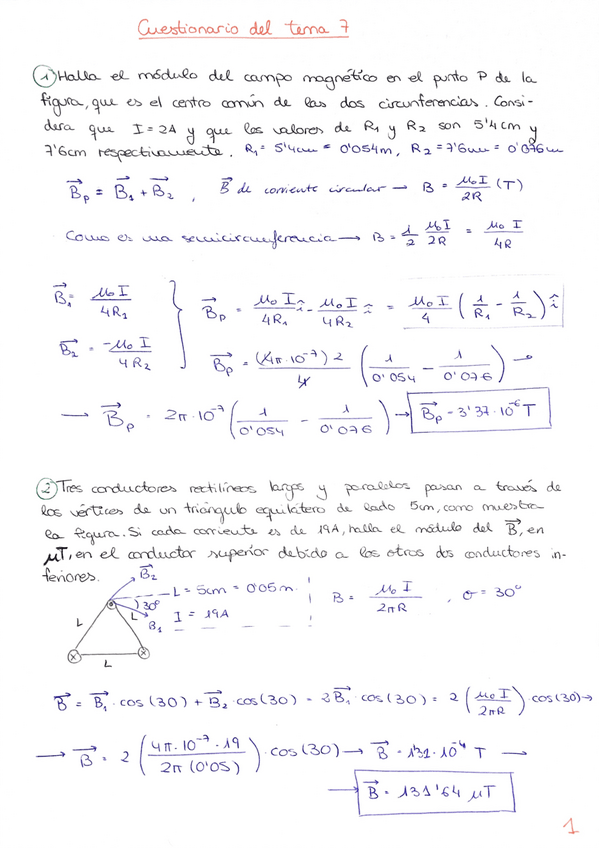 Cuestionario del tema 7
1) Halla el módulo del campo magnético en el punto P de la
figura, que es el centro común de las dos circunferencias. Consi-
dera que I = 2A y que los valores de R₁ y R₂ son 5'4cm y
7'6cm respectivamente. R₁ = 5'4cm = 0'054m, R₂ = 7'6cm = 0'076m
B⃗p = B⃗₁ + B⃗₂ , B⃗ de corriente circular → B = μ₀I/2R (T)
Como es una semicircunferencia → B = 1/2 μ₀I/2R = μ₀ I/4R
B⃗₁ = μ₀I/4R₁
B⃗p = μ₀I/4R₁ î - μ₀I/4R₂ î = μ₀I/4 (1/R₁ - 1/R₂) î
B⃗₂ = -μ₀I/4R₂
B⃗p = (4π·10⁻⁷)2/4 (1/0'054 - 1/0'076) →
→ B⃗p = 2π·10⁻⁷ (1/0'054 - 1/0'076) → B⃗p = 3'37·10⁻⁶ T
2) Tres conductores rectilíneos largos y paralelos pasan a través de
los vértices de un triángulo equilátero de lado 5cm, como muestra
la figura. Si cada corriente es de 19A, halla el módulo del B⃗, en
μT, en el conductor superior debido a los otros dos conductores in-
feriores.
B⃗₂
L = 5cm = 0'05m
30°
B = μ₀ I/2πR , σ = 30°
L
L
B⃗₁
I = 19A
L
B⃗ = B⃗₁·cos(30) + B⃗₂·cos(30) = 2B⃗₁·cos(30) = 2 (μ₀I/2πR) cos(30) →
→ B⃗ = 2 (4π·10⁻⁷·19/2π(0'05)) · cos(30) → B⃗ = 1'31·10⁻⁴ T →
→ B⃗ = 131'64 μT
1